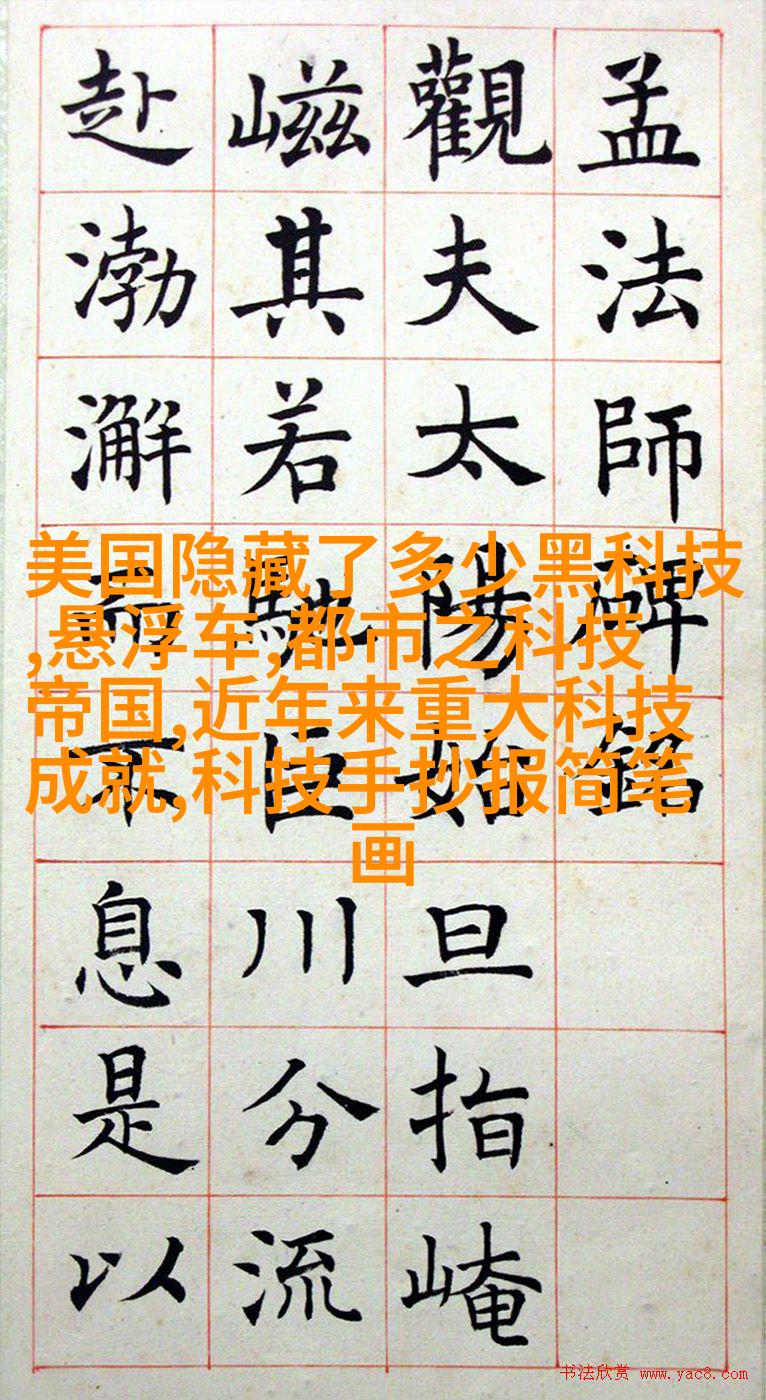 孟法師碑銘
觀夫太陽始旦指崦
嵫其若馳巨川分流
赴渤澥而不息是以
美国隐藏了多少黑科技
,悬浮车,都市之科技
帝国,近年来重大科技
成就,科技手抄报简笔
画
书法欣赏 www.yac8.com